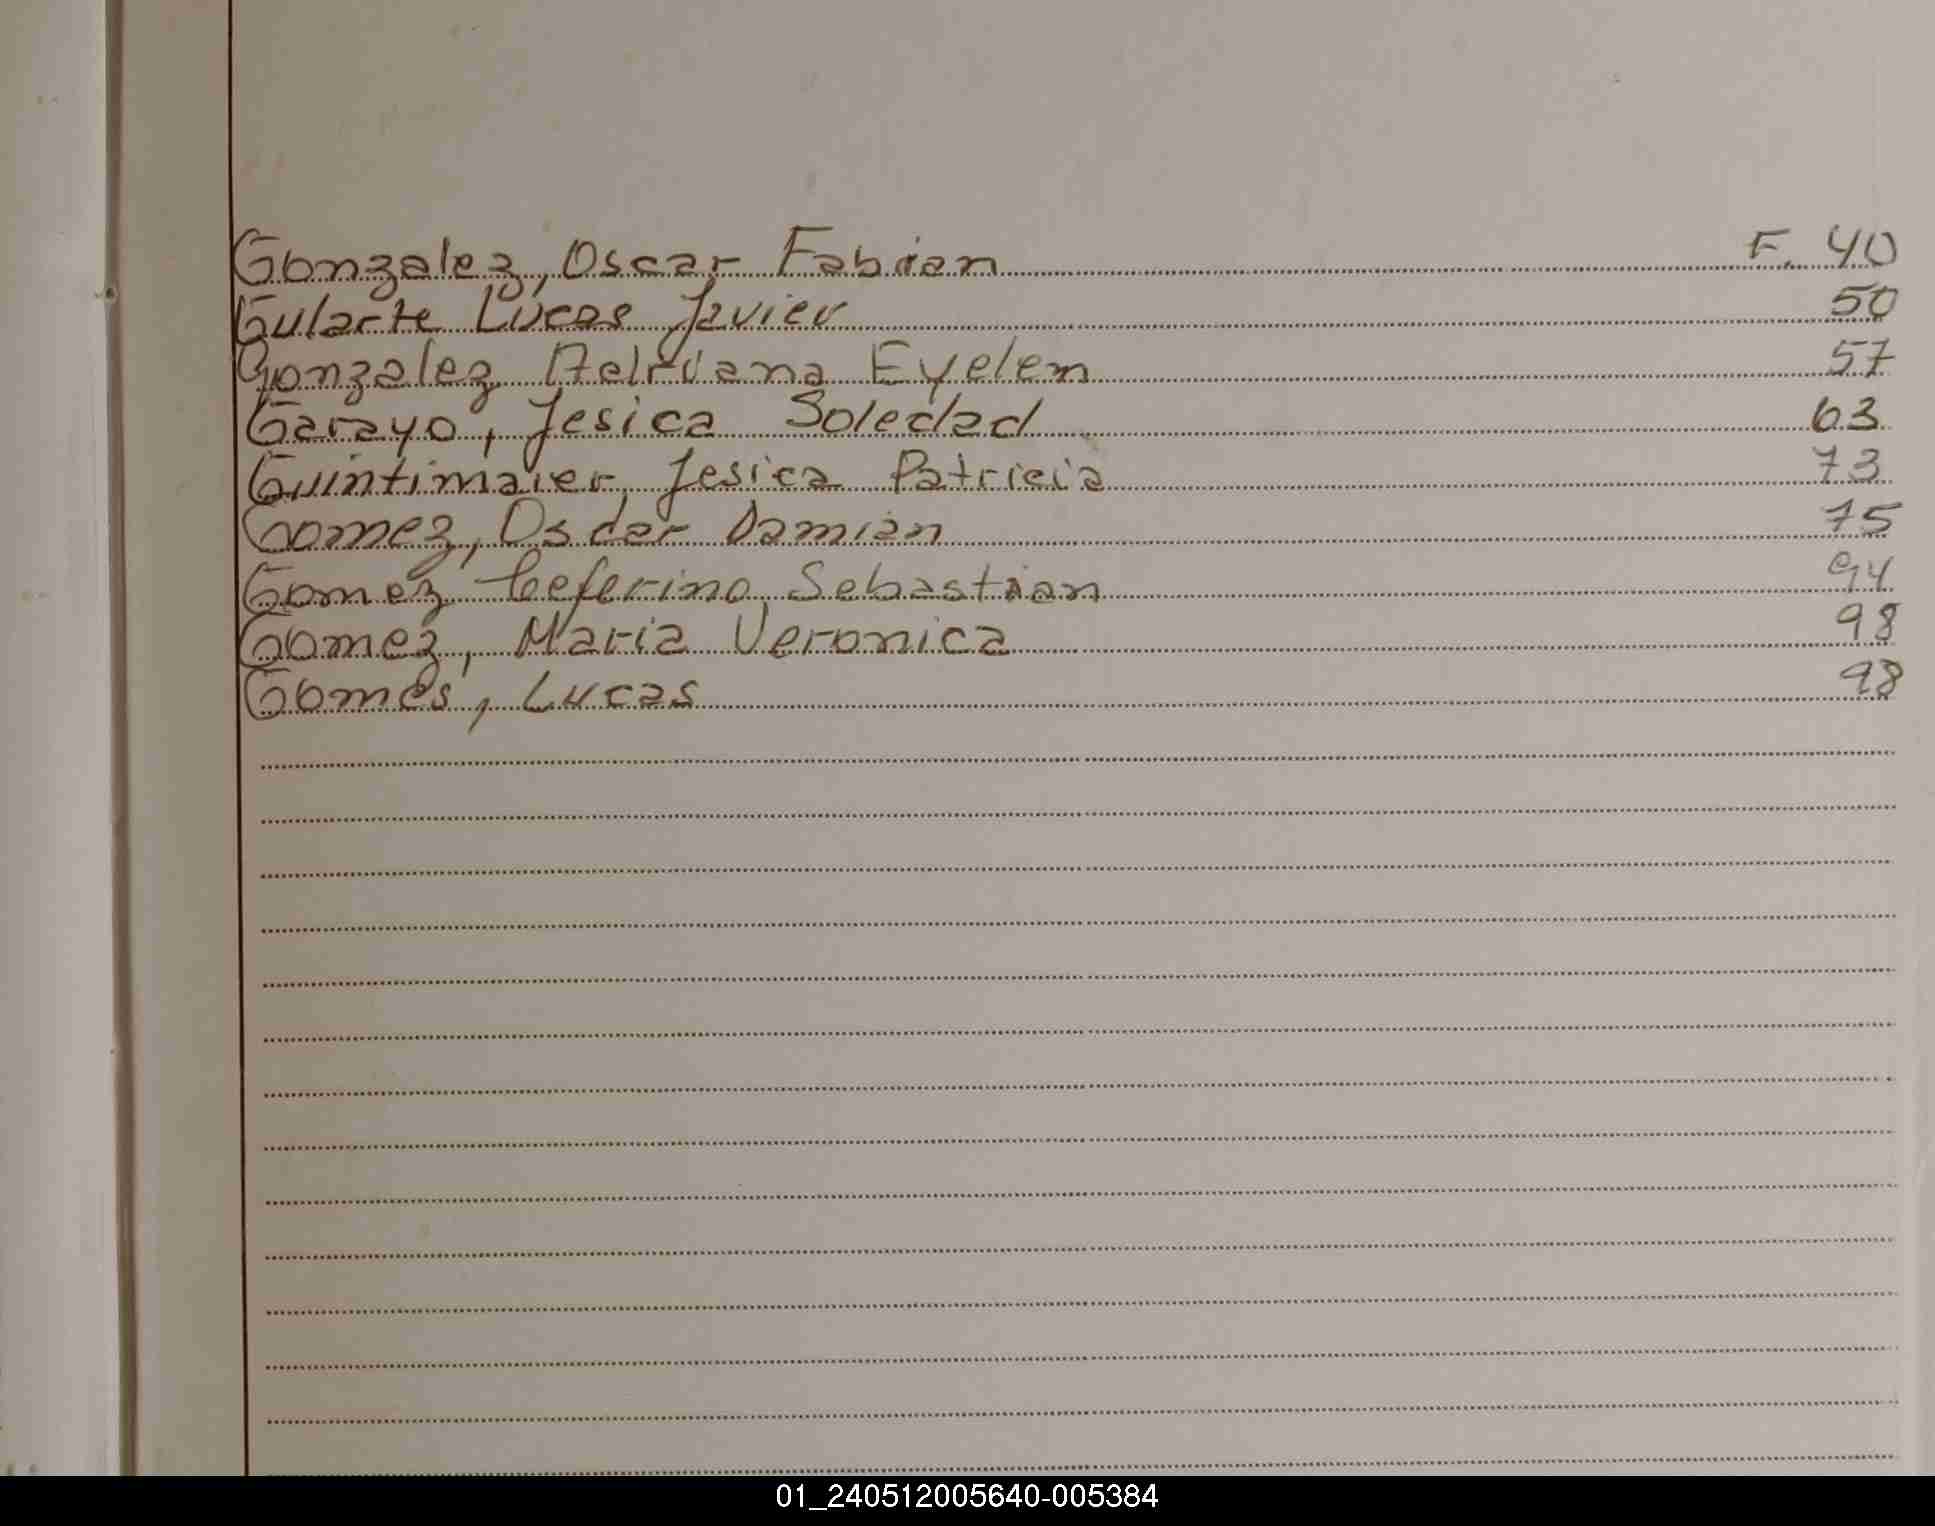 Gonzalez, Oscar Fabian F. 40
Gularte Lucas Javier 50
Gonzalez Adriana Eyelem 57
Garayo, Jesica Soledad 63
Guintimaier Jesica Patricia 73
Gomez, Oscar Damian 75
Gomez Ceferino Sebastian 94
Gomez, Maria Veronica 98
Gomes, Lucas 98
01_240512005640-005384